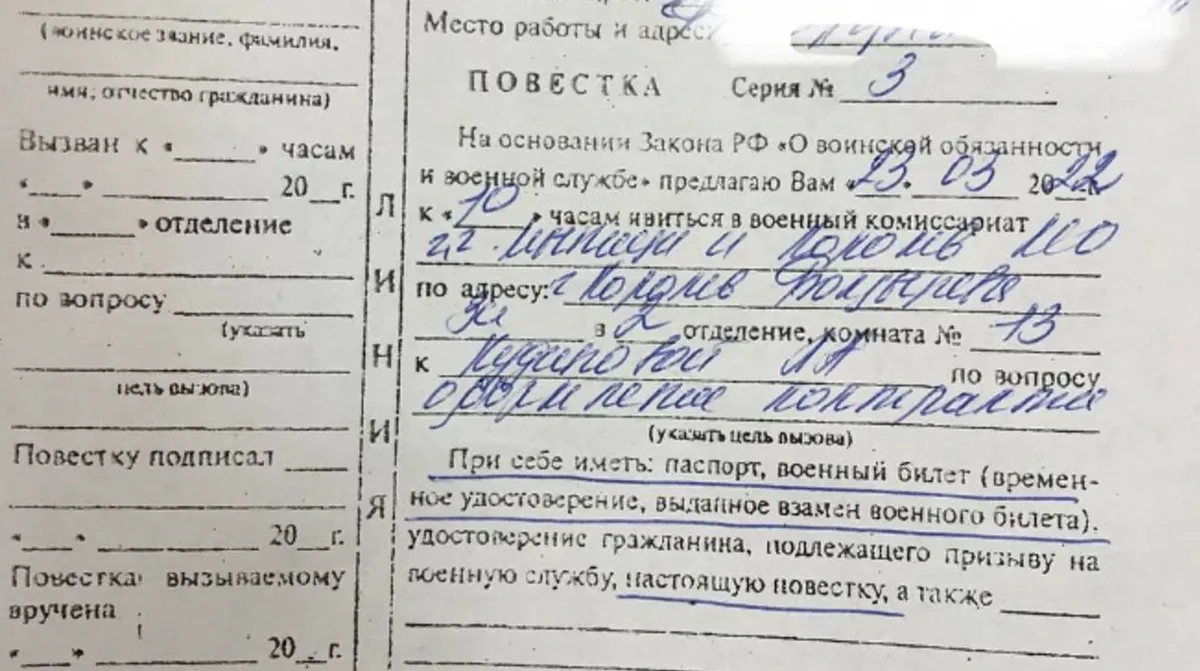 (воинское звание, фамилия,
имя, отчество гражданина)
Вызван к «____» часам
«____» ________ 20__г.
в «____» отделение
к
по вопросу
(указать
цель вызова)
Повестку подписал
«____» ________ 20__г.
Повестка вызываемому
вручена
«____» ________ 20__г.
ЛИНИЯ
Место работы и адрес:
ПОВЕСТКА Серия № 3
На основании Закона РФ «О воинской обязанности
и военной службе» предлагаю Вам «23» 03 2022 г.
к «10» часам явиться в военный комиссариат
г.г. Мытищи и Королев МО
по адресу: г Королев Болдырева
в 2 отделение, комната № 13
к Кудиновой по вопросу
оформление контракта
(указать цель вызова)
При себе иметь: паспорт, военный билет (времен-
ное удостоверение, выданное взамен военного билета),
удостоверение гражданина, подлежащего призыву на
военную службу, настоящую повестку, а также